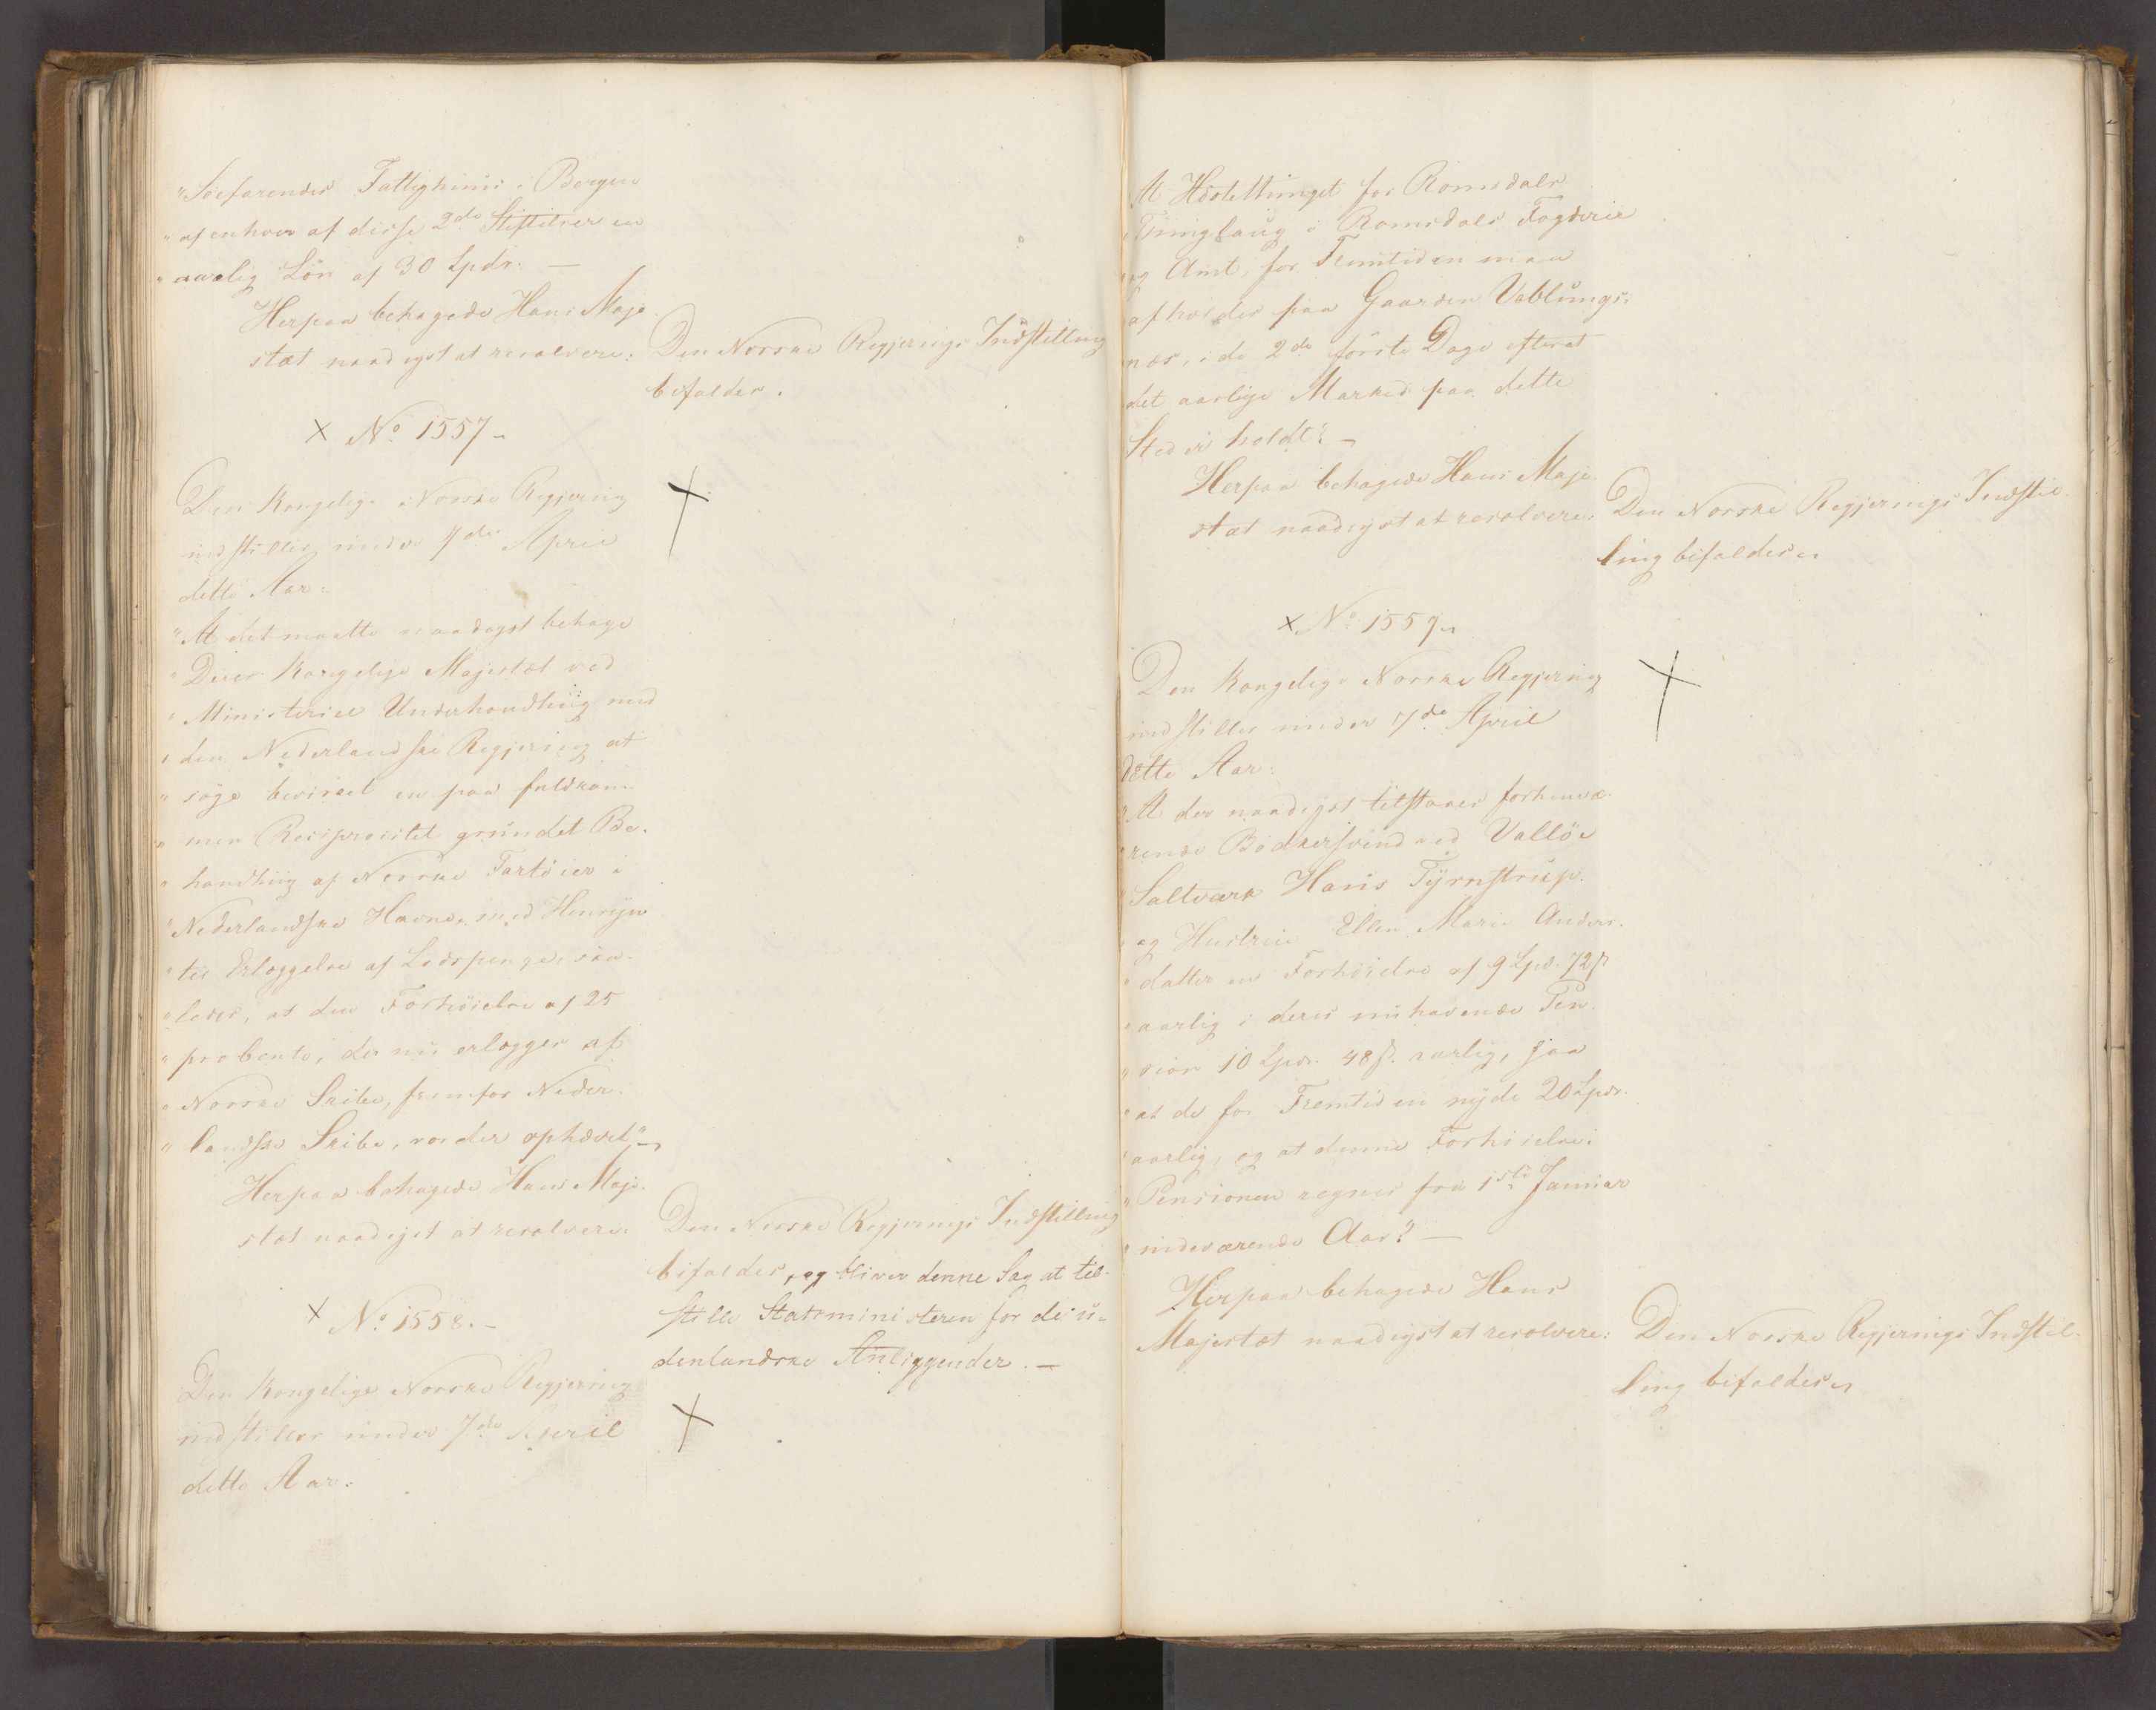 "Søefarendes Fattighuus i Bergen
"af enhver af disse 2de Stiftelser en
"aarlig Løn af 30 Spdr. —
Herpaa behagede Hans Maje-
stæt naadigst at resolvere:
Den Norske Regjerings Indstilling
bifaldes.
× No 1557.
Den Kongelige Norske Regjering
indstiller under 7de April
dette Aar:
"At det maatte naadigst behage
"Deres Kongelige Majestæt ved
"Ministeriel Underhandling med
"den Nederlandske Regjering at
"søge bevirket en paa fuldkom-
"men Reciprocitet grundet Be-
"handling af Norske Fartøier i
"Nederlandske Havne, med Hensyn
"til Erlæggelse af Lodspenge, saa-
"ledes, at den Forhøielse af 25
"procento, der nu erlægges af
"Norske Skibe, fremfor Neder-
"landske Skibe, vorder ophævet" —
Herpaa behagede Hans Maje-
stæt naadigst at resolvere:
Den Norske Regjerings Indstilling
bifaldes, og bliver denne Sag at til-
stille Statsministeren for de u-
denlandske Anliggender. —
× No 1558. —
Den Kongelige Norske Regjering
indstiller under 7de April
dette Aar:
"At Høstethinget for Romsdals
"Thinglaug i Romsdals Fogderie
"og Amt, for Fremtiden maa
"afholdes paa Gaarden Veblungs-
næs, i de 2de første Dage efterat
det aarlige Marked paa dette
Sted er holdt". —
Herpaa behagede Hans Maje-
stæt naadigst at resolvere:
Den Norske Regjerings Indstil-
ling bifaldes.
× No 1559.
Den Kongelige Norske Regjering
indstiller under 7de April
dette Aar:
"At der naadigst tilstaaes forhenvæ-
"rende Bødkersvend ved Valløe
"Saltværk Hans Tyrnstrup
"og Hustrue Ellen Marie Anders-
"datter en Forhøielse af 9 Spd. 72 ß
"aarlig i deres nu havende Pen-
"sion 10 Spdr. 48 ß. aarlig, saa
"at de for Fremtiden nyde 20 Spdr.
"aarlig, og at denne Forhøielse i
"Pensionen regnes fra 1ste Januar
"indeværende Aar". —
Herpaa behagede Hans
Majestæt naadigst at resolvere:
Den Norske Regjerings Indstil-
ling bifaldes.